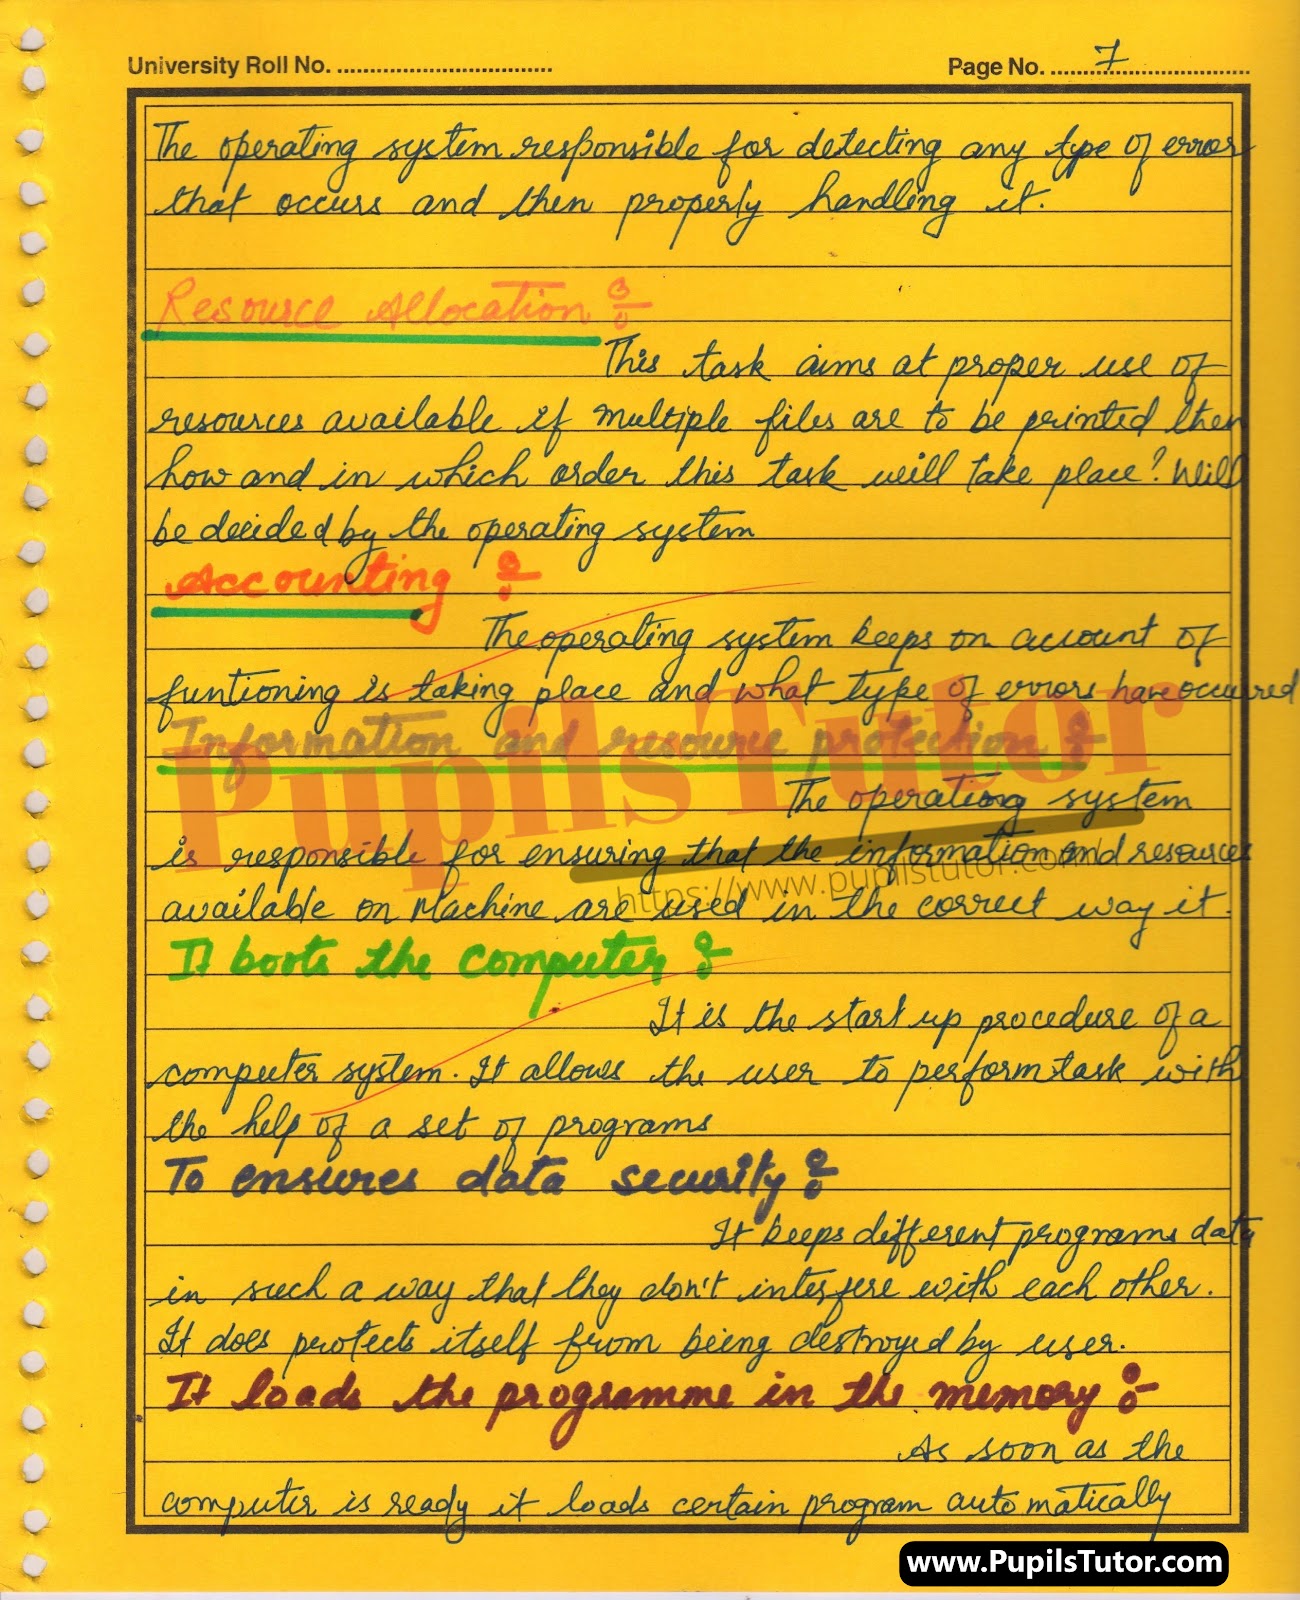 University Roll No. ................................. Page No. ...7...........................
The operating system responsible for detecting any type of error
that occurs and then properly handling it.
Resource Allocation :-
This task aims at proper use of
resources available if multiple files are to be printed then
how and in which order this task will take place? Will
be decided by the operating system
Accounting :-
The operating system keeps on account of
funtioning is taking place and what type of errors have occurred
Information and resource protection :-
The operationg system
is responsible for ensuring that the information and resources
available on Machine are used in the correct way it.
PupilsTutor
https://www.pupilstutor.com/
It boots the computer :-
It is the start up procedure of a
computer system. It allows the user to perform task with
the help of a set of programs
To ensures data security :-
It keeps different programs data
in such a way that they don't interfere with each other.
It does protects itself from being destroyed by user.
It loads the programme in the memory :-
As soon as the
computer is ready it loads certain program automatically
www.PupilsTutor.com